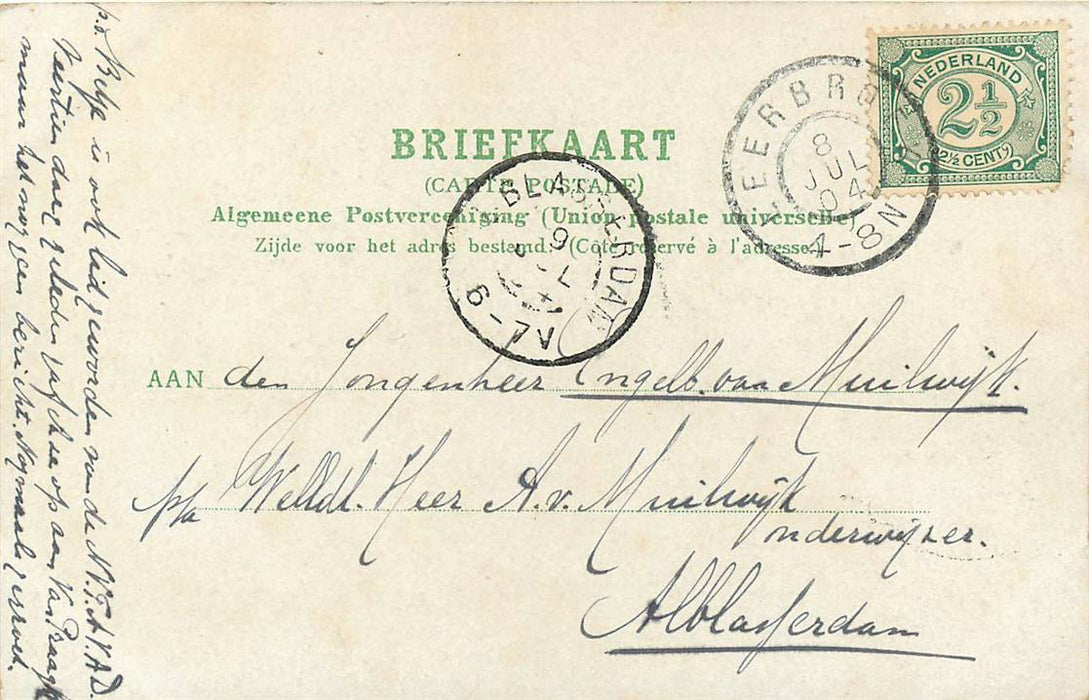 BRIEFKAART
(CARTE POSTALE)
Algemeene Postvereeniging (Union postale universelle)
Zijde voor het adres bestemd. (Côté réservé à l'adresse.)
NEDERLAND
2½
2½ CENT
EERBR
8
JUL
04
4-8N
ABLASSERDAM
9
JUL
6-7V
AAN den Jongenheer Engelb. van Muilwijk.
p/a Weledl. Heer A. v. Muilwijk
onderwijzer.
Alblasserdam
p.s. Betje is ook lid geworden van de N.V.T.A.V.A.D.
Veertien dagen geleden gaf ik ze op aan Van Praag
maar het nog geen bericht. Nogmaals gegroet.